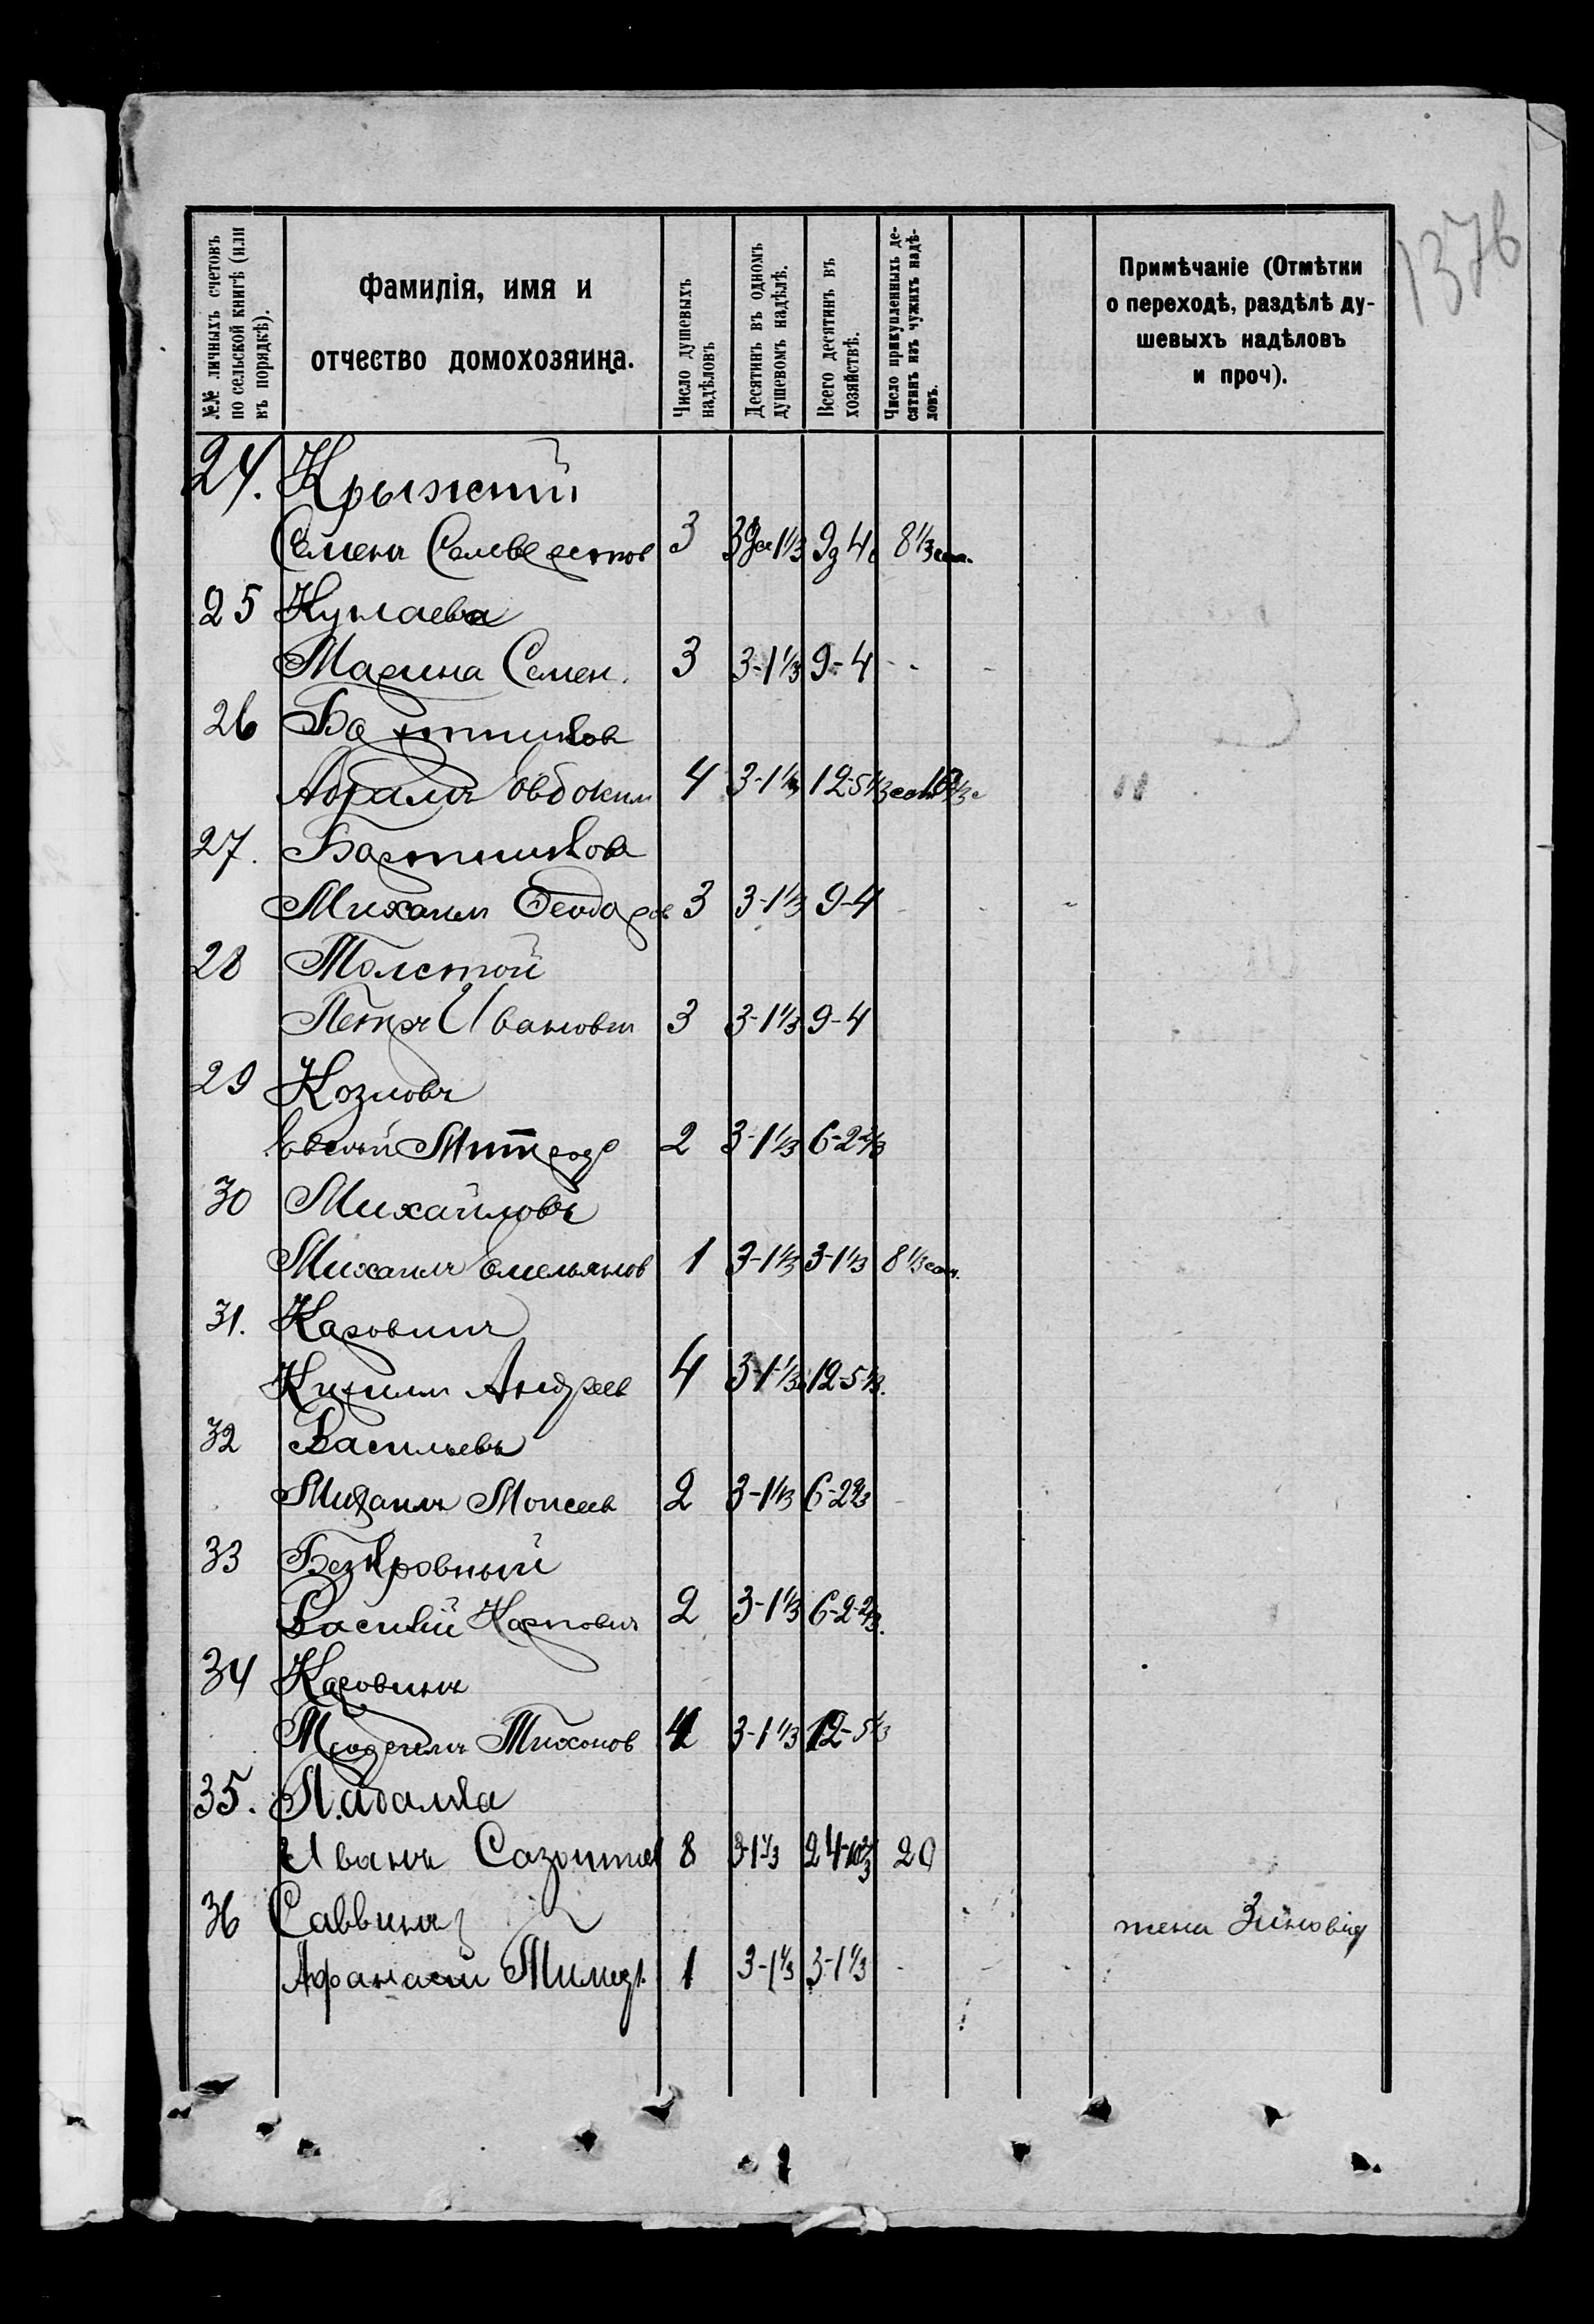 1376
№№ личныхъ счетовъ по сельской книгѣ (или въ порядкѣ).
Фамилія, имя и отчество домохозяина.
Число душевыхъ надѣловъ
Десятинъ въ одномъ душевомъ надѣлѣ.
Всего десятинъ въ хозяйствѣ.
Число прикупленныхъ десятинъ изъ чужихъ надѣловъ.
Примѣчаніе (Отмѣтки о переходѣ, раздѣлѣ душевыхъ надѣловъ и проч).
24. Крымский
Семенъ 3 3 1⅓ 9д 4с 8⅓ сот.
25
Марина Семен. 3 3-1⅓ 9-4
26
Абрамъ Евдоким 4 3-1⅓ 12-5⅓
27. Бартникова
Михаил Феодоров 3 3-1⅓ 9-4
28 Толстой
Петръ Иванович 3 3-1⅓ 9-4
29 Козловъ
2 3-1⅓ 6-2⅔
30 Михайловъ
Михаилъ Емельянов 1 3-1⅓ 3-1⅓ 8⅓ сот.
31. Каровинъ
Кирилл Андреев 4 3-1⅓ 12-5⅓.
32 Васильевъ
Михаилъ Моисеев 2 3-1⅓ 6-2⅔
33 Безкровный
Василий Карпович 2 3-1⅓ 6-2⅔.
34 Каровинъ
Тихонов 4 3-1⅓ 12-5⅓
35. Падалка
Иванъ 8 3-1⅓ 24-10⅔ 20
36 Саввинъ жена Зиновія
Афанасий 1 3-1⅓ 3-1⅓